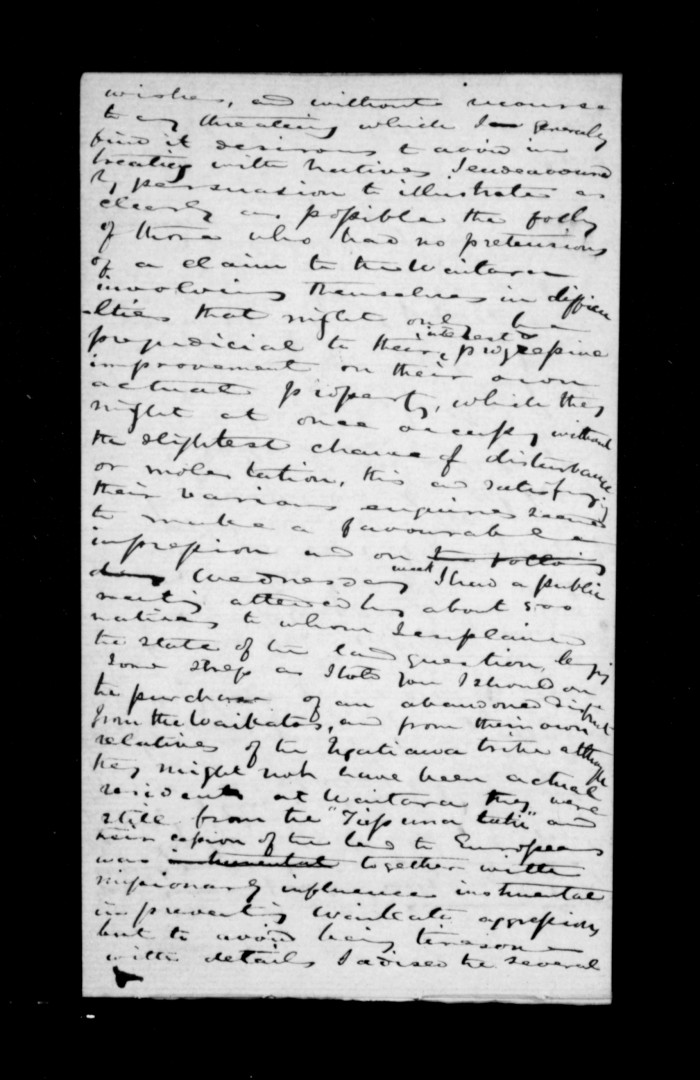 wishes, and without recourse
to any threatening which I generally
find it desirous to avoid in
treating with Natives I endeavoured
by persuasion to illustrate as
clearly as possible the folly
of those who had no pretensions
of a claim to the Waitara
involving themselves in difficu
-lties that might only be
prejudicial to their interest & progressive
improvement on their own
actual property, which they
might at once occupy without
the slightest chance of disturbance
or molestation, this and satisfying
their various enquiries seemed
to make a favourable
impression and on
Wednesday week I had a public
meeting attended by about 500
natives to whom I explained
the state of the land question, laying
some stress as I told you I should on
the purchase of an abandoned district
from the Waikatos, and from their own
relatives of the Ngatiawa tribe although
they might not have been actual
residents at Waitara they were
still from the "Tupuna" and
their cession of the land to Europeans
was together with
missionary influence instrumental
in preventing Waikato aggression
but to avoid being tiresome
with details I advised the several